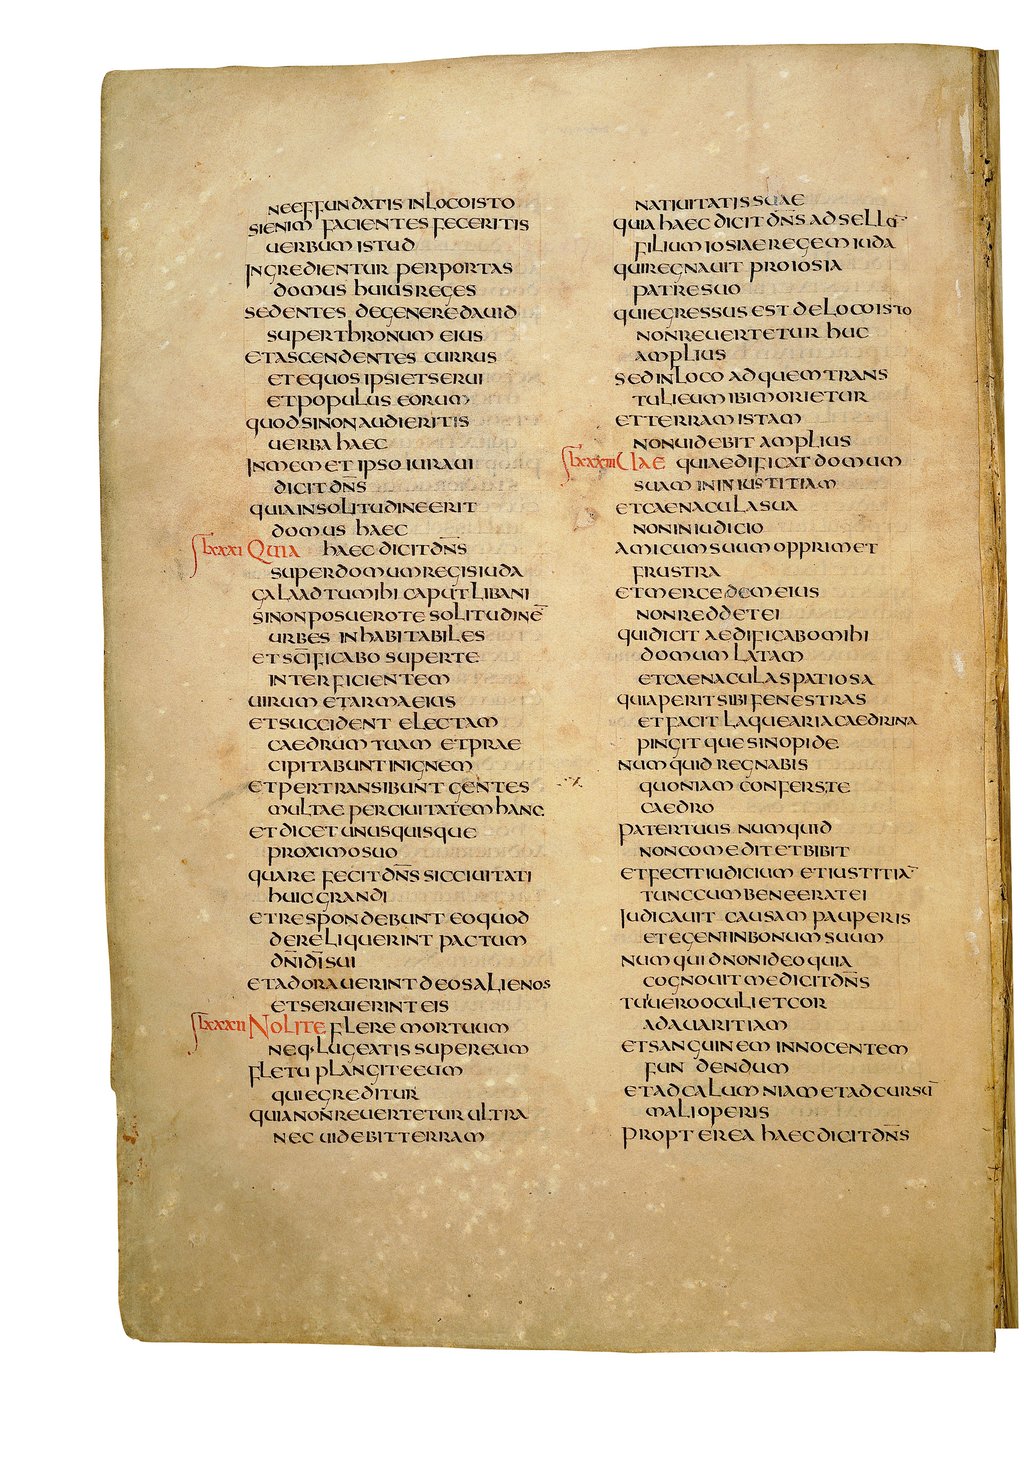 NEEFFUNDATIS INLOCOISTO
SIENIM FACIENTES FECERITIS
UERBUM ISTUD
INGREDIENTUR PERPORTAS
DOMUS HUIUSREGES
SEDENTES DEGENEREDAUID
SUPERTHRONUM EIUS
ETASCENDENTES CURRUS
ETEQUOS IPSIETSERUI
ETPOPULUS EORUM
QUODSINONAUDIERITIS
UERBA HAEC
INMEMET IPSO IURAUI
DICIT DN̅S
QUIAINSOLITUDINEERIT
DOMUS HAEC
lxxxi QUIA HAEC DICIT DN̅S
SUPERDOMUMREGISIUDA
GALAADTUMIHI CAPUT LIBANI
SINONPOSUEROTE SOLITUDINE̅
URBES INHABITABILES
ETSC̅IFICABO SUPERTE
INTERFICIENTEM
UIRUM ETARMAEIUS
ETSUCCIDENT ELECTAM
CAEDRUM TUAM ETPRAE
CIPITABUNTINIGNEM
ETPERTRANSIBUNT GENTES
MULTAE PERCIUITATEM HANC
ETDICET UNUSQUISQUE
PROXIMOSUO
QUARE FECIT DN̅S SICCIUITATI
HUICGRANDI
ETRESPONDEBUNT EOQUOD
DERELIQUERINT PACTUM
DN̅IDI̅SUI
ETADORAUERINTDEOSALIENOS
ETSERUIERINTEIS
lxxxii NOLITE FLERE MORTUUM
NEQ·LUGEATIS SUPEREUM
FLETU PLANGITEEUM
QUIEGREDITUR
QUIANONREUERTETURULTRA
NEC UIDEBITTERRAM
NATIUITATISSUAE
QUIA HAEC DICIT DN̅S AD SELLU̅
FILIUM IOSIAEREGEM IUDA
QUIREGNAUIT PROIOSIA
PATRESUO
QUIEGRESSUS EST DELOCOISTO
NONREUERTETUR HUC
AMPLIUS
SEDINLOCO ADQUEMTRANS
TULIEUMIBIMORIETUR
ETTERRAMISTAM
NONUIDEBIT AMPLIUS
lxxxiii UAE QUIAEDIFICATDOMUM
SUAM ININIUSTITIAM
ETCAENACULASUA
NONINIUDICIO
AMICUMSUUMOPPRIMET
FRUSTRA
ETMERCEDEMEIUS
NONREDDETEI
QUIDICIT AEDIFICABOMIHI
DOMUM LATAM
ETCAENACULASPATIOSA
QUIAPERITSIBIFENESTRAS
ETFACIT LAQUEARIACAEDRINA
PINGITQUESINOPIDE
NUMQUID REGNABIS
QUONIAM CONFERSTE
CAEDRO
PATERTUUS NUMQUID
NONCOMEDITETBIBIT
ETFECITIUDICIUM ETIUSTITIA̅
TUNCCUMBENEERATEI
IUDICAUIT CAUSAM PAUPERIS
ETEGENIINBONUMSUUM
NUMQUIDNONIDEOQUIA
COGNOUITMEDICITDN̅S
TUUEROOCULIETCOR
ADAUARITIAM
ETSANGUINEM INNOCENTEM
FUNDENDUM
ETADCALUMNIAMETADCURSU̅
MALIOPERIS
PROPTEREA HAECDICITDN̅S